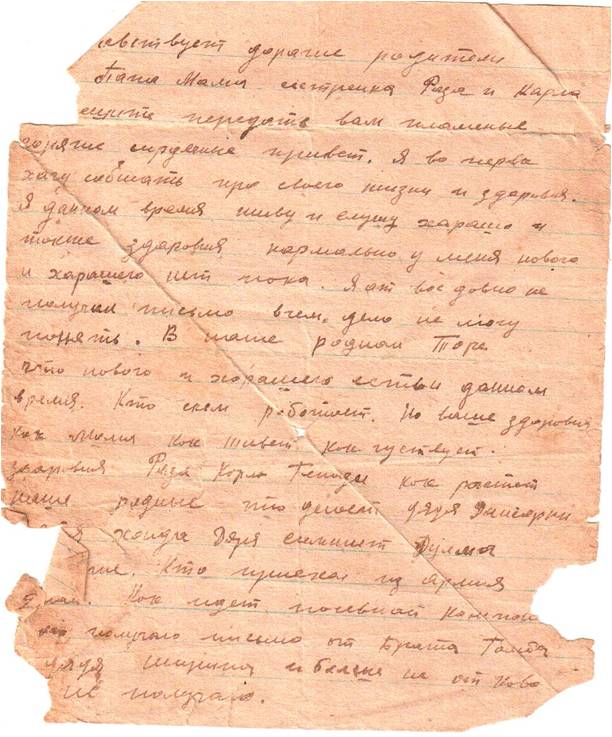 вствует дорагие родители
Папа Мама сестренка Рая и Карла
передать вам пламеные
горячие сердечные привет. Я во перва
хачу собшать про своего жизни и здаровя.
Я данном время живу и служу харашо и
также здаровия нармально у меня нового
и харашего нет пока. Я от вас давно не
получил письмо в чем дело не могу
понять. В наше родном Торе
что нового и хорашего есть в данном
время. Кто скем работает. Но ваше здоровия
как Мама как живет как чуствует.
здаровия Рая Карла Генади как растет
наше родные что делает дядя
Дяря Дулма
Кто приехал из армия
Как идет посевной
получаю письмо от Брата
дядя и больше не от ково
не получаю.